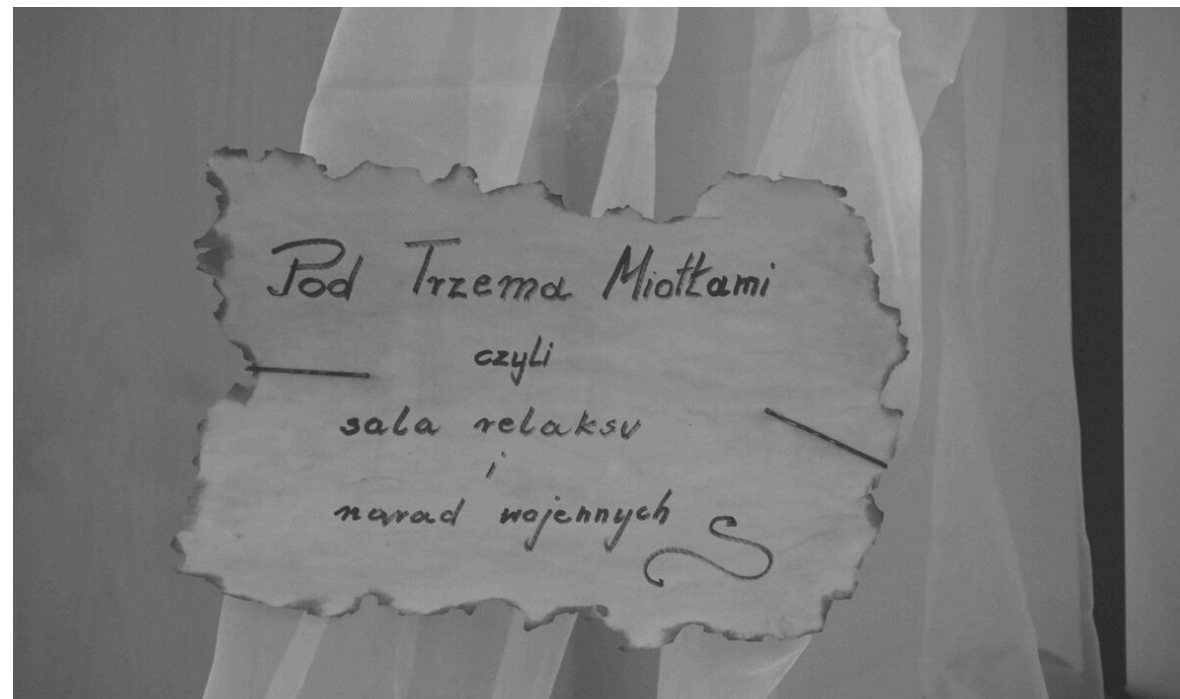 Pod Trzema Miotłami
czyli
sala relaksu
i
narad wojennych